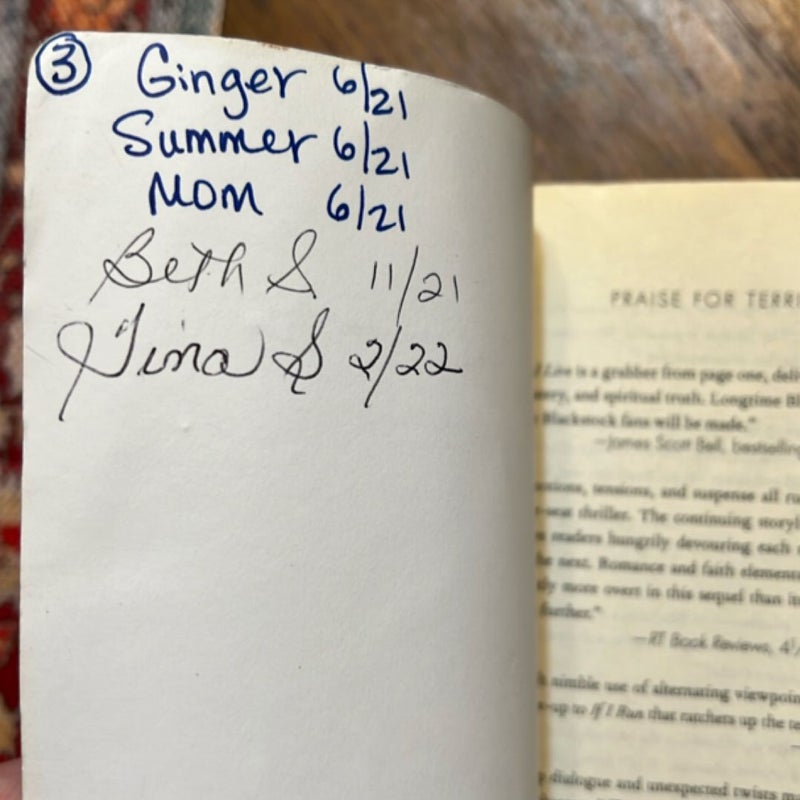 ③ Ginger 6/21
Summer 6/21
Mom 6/21
Beth S 11/21
Gina S 2/22
PRAISE FOR TERRI
Live is a grabber from page one, deli
and spiritual truth. Longtime Bl
Blackstock fans will be made."
—James Scott Bell, bestselling
tensions, and suspense all ru
thriller. The continuing storyl
readers hungrily devouring each
next. Romance and faith element
more overt in this sequel than in
further."
—RT Book Reviews, 4½
nimble use of alternating viewpoin
-up to If I Run that ratchets up the te
dialogue and unexpected twists m